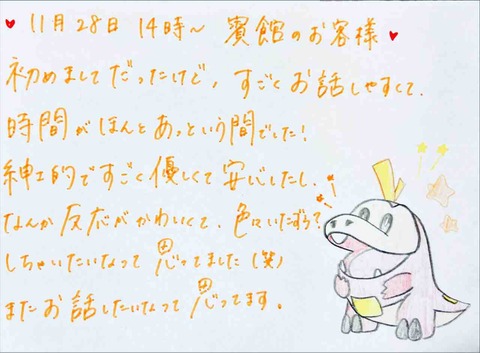 ♥ 11月28日 14時〜 賓館のお客様 ♥
初めましてだったけど、すごくお話しやすくて、
時間がほんとあっという間でした!
紳士的ですごく優しくて安心したし、
なんか反応がかわいくて、色々いたずらって
しちゃいたいなって思ってました(笑)
またお話したいなって思ってます。